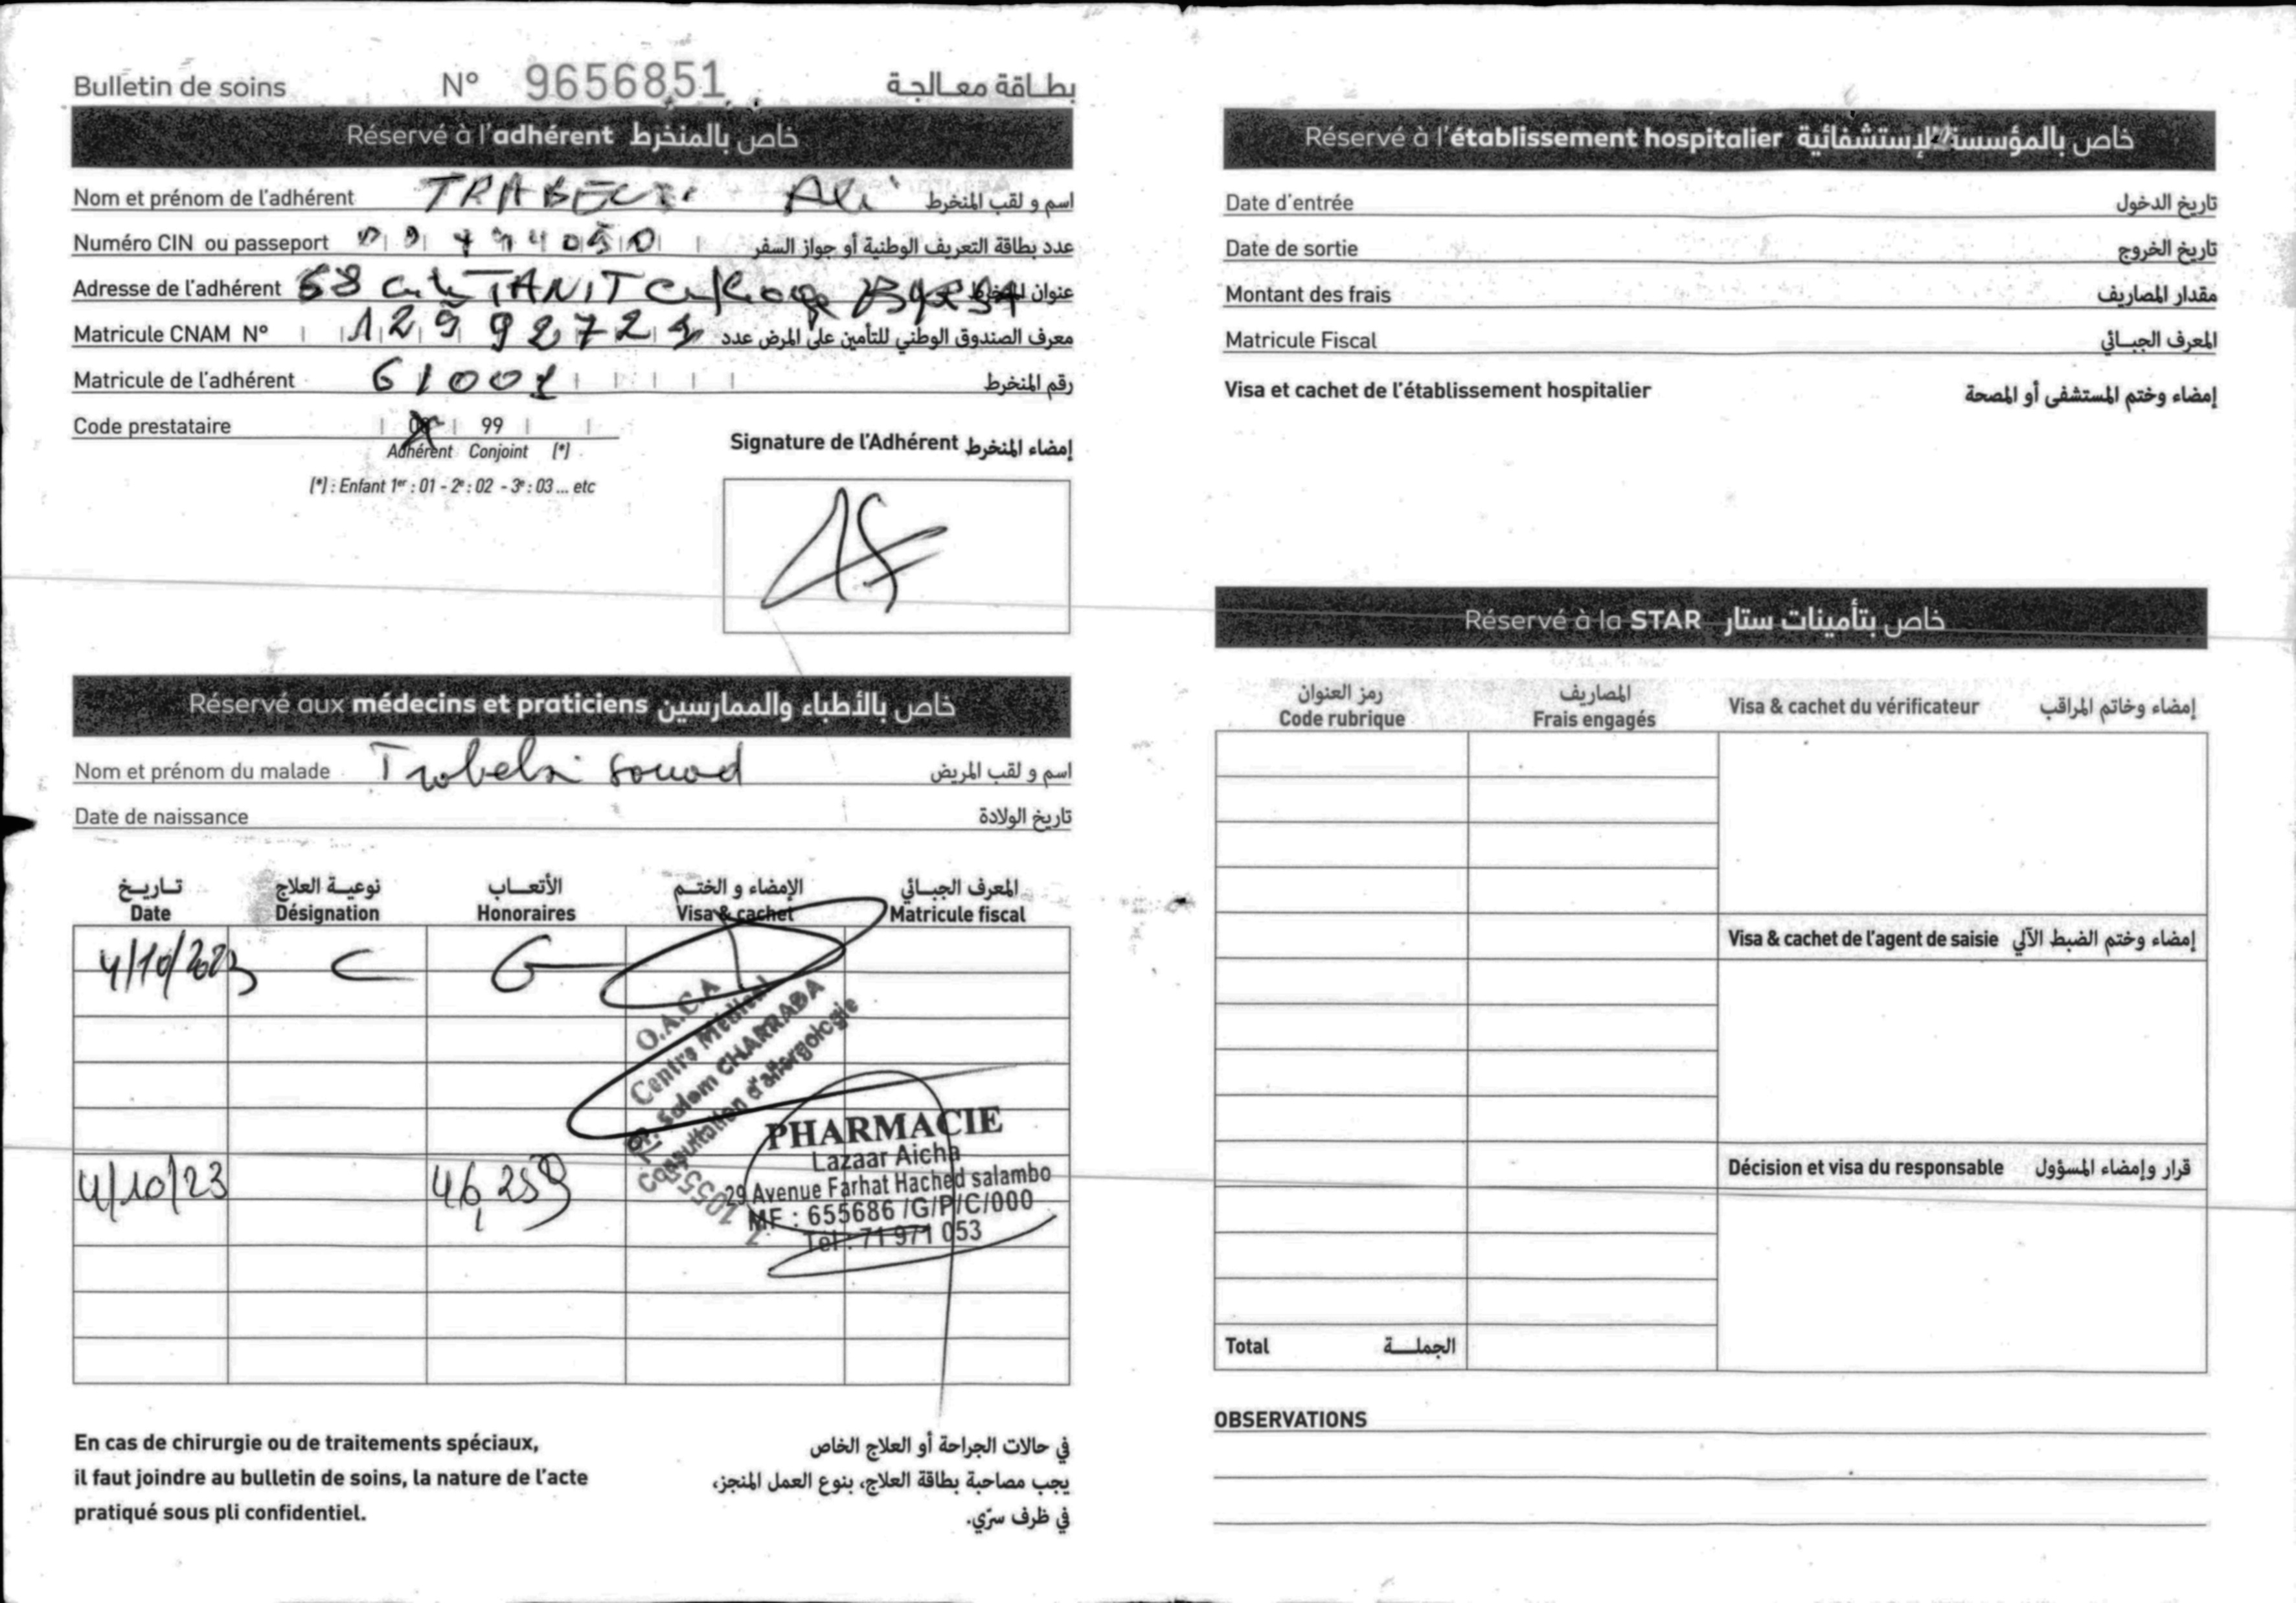 Bulletin de soins N° 9656851 بطاقة معالجة
Réservé à l'adhérent خاص بالمنخرط
Nom et prénom de l'adhérent TRABELSI Ali اسم و لقب المنخرط
Numéro CIN ou passeport عدد بطاقة التعريف الوطنية أو جواز السفر
Adresse de l'adhérent 68 TANIT عنوان المنخرط
Matricule CNAM N° معرف الصندوق الوطني للتأمين على المرض عدد
Matricule de l'adhérent 61001 رقم المنخرط
Code prestataire 99
Adhérent Conjoint (*)
(*) : Enfant 1er : 01 - 2e : 02 - 3e : 03 ... etc
Signature de l'Adhérent إمضاء المنخرط
Réservé aux médecins et praticiens خاص بالأطباء والممارسين
Nom et prénom du malade Trabelsi Souad اسم و لقب المريض
Date de naissance تاريخ الولادة
تاريخ نوعية العلاج الأتعاب الإمضاء و الختم المعرف الجبائي
Date Désignation Honoraires Visa & cachet Matricule fiscal
4/10/2023 C G
O.A.C.A
Centre Médical
Dr. Salem CHARRADA
Consultation d'allergologie
4/10/23 46,259
PHARMACIE
Lazaar Aicha
29 Avenue Farhat Hached salambo
MF : 655686 /G/P/C/000
Tél : 71 971 053
En cas de chirurgie ou de traitements spéciaux,
il faut joindre au bulletin de soins, la nature de l'acte
pratiqué sous pli confidentiel.
في حالات الجراحة أو العلاج الخاص
يجب مصاحبة بطاقة العلاج، بنوع العمل المنجز،
في ظرف سرّي.
Réservé à l'établissement hospitalier خاص بالمؤسسة الإستشفائية
Date d'entrée تاريخ الدخول
Date de sortie تاريخ الخروج
Montant des frais مقدار المصاريف
Matricule Fiscal المعرف الجبائي
Visa et cachet de l'établissement hospitalier إمضاء وختم المستشفى أو المصحة
Réservé à la STAR خاص بتأمينات ستار
رمز العنوان المصاريف
Code rubrique Frais engagés Visa & cachet du vérificateur إمضاء وخاتم المراقب
Visa & cachet de l'agent de saisie إمضاء وختم الضبط الآلي
Décision et visa du responsable قرار وإمضاء المسؤول
Total الجملة
OBSERVATIONS